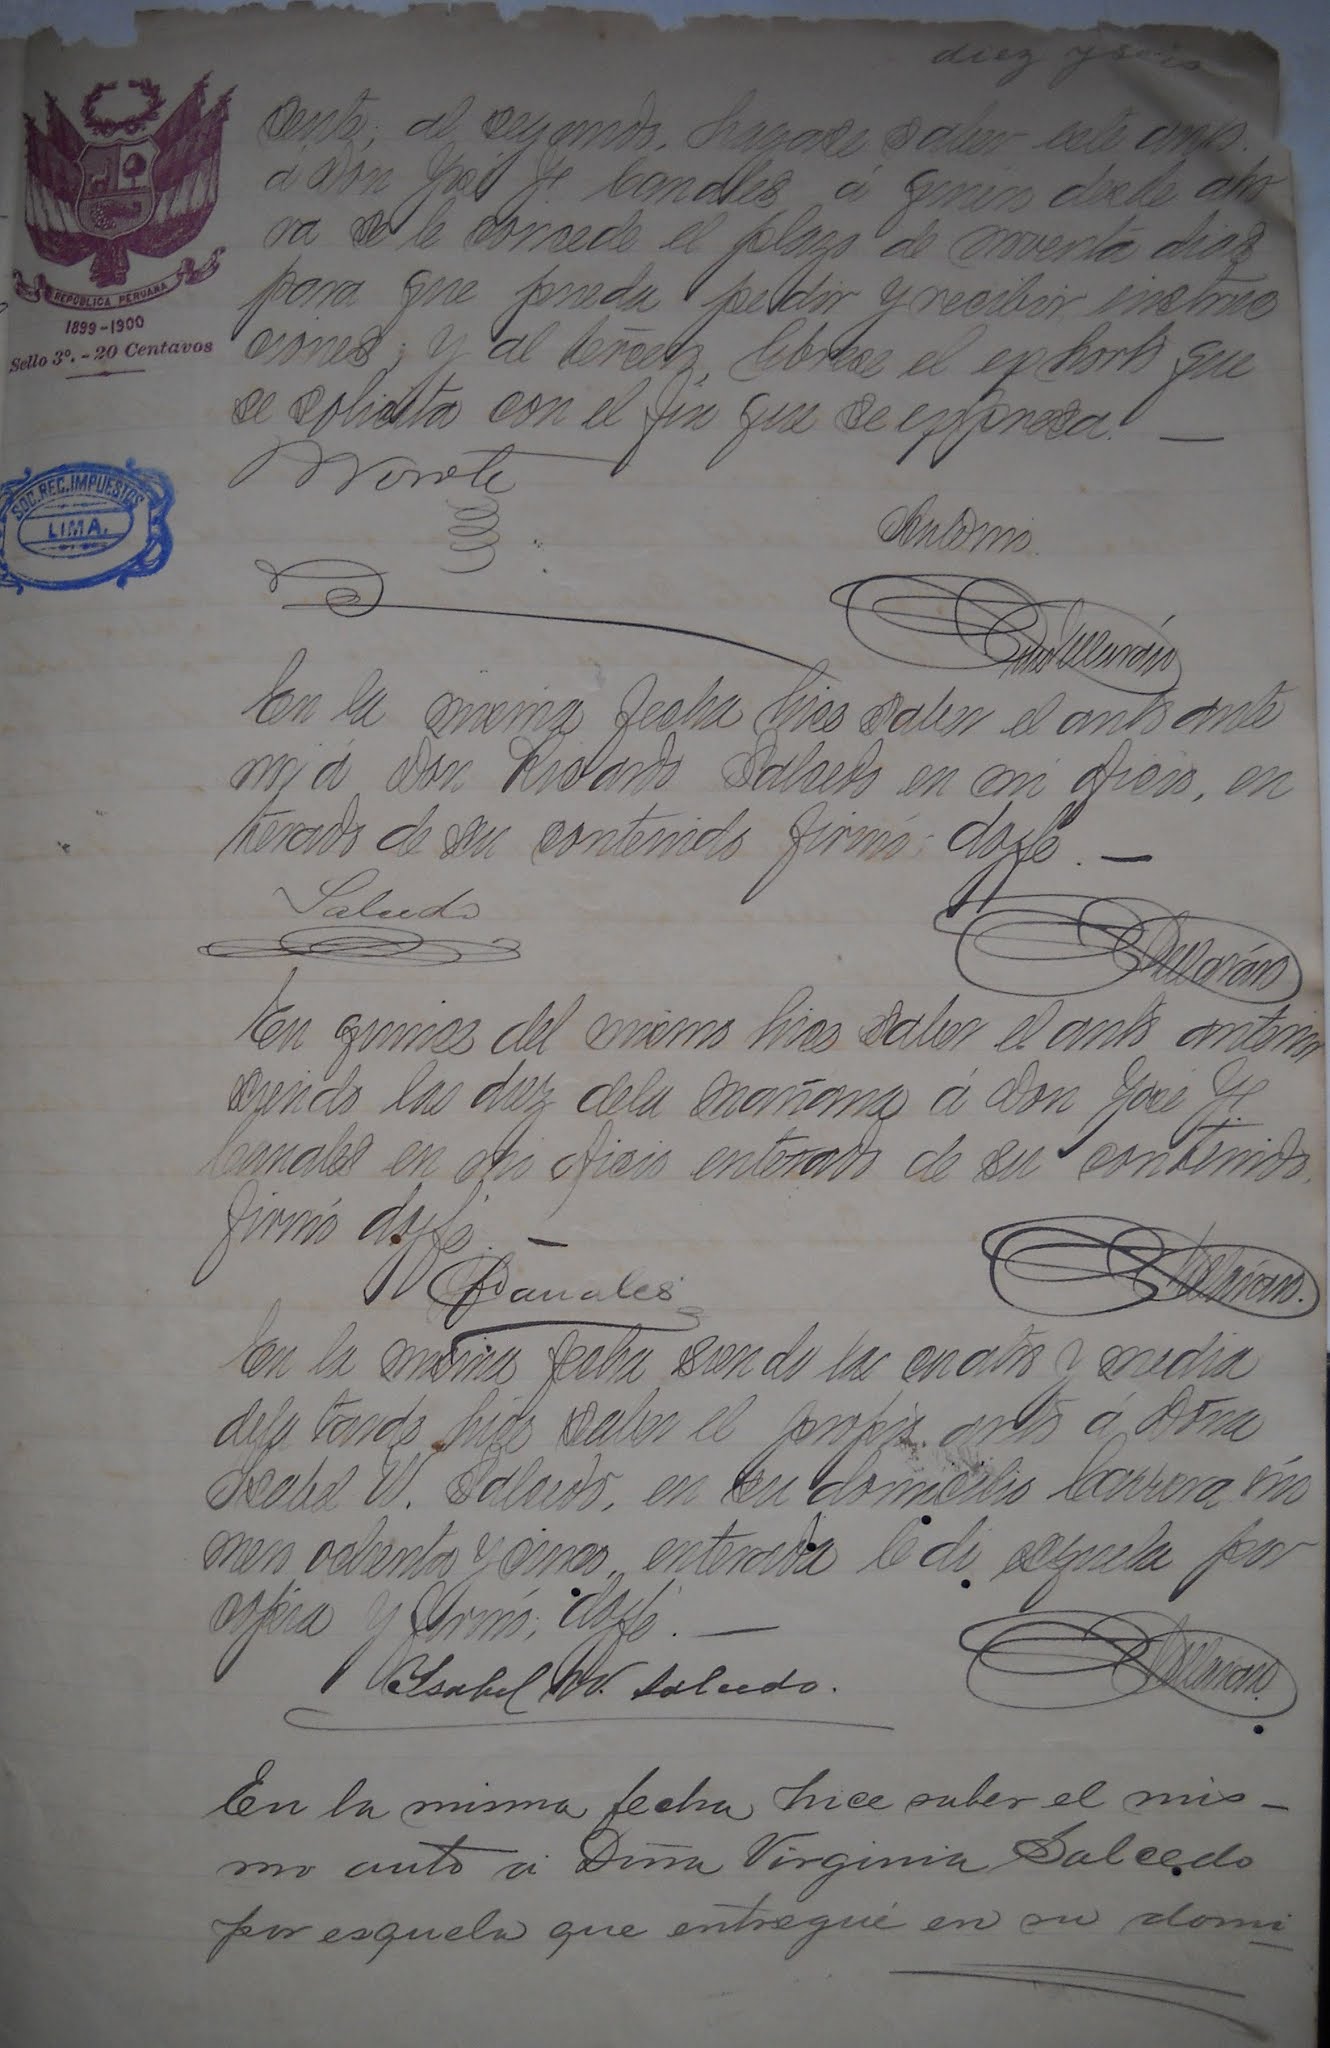 diez y seis
sente; al segundo, hagase saber este auto
á Don José F. Canales á quien desde aho
ra se le concede el plazo de noventa dias
para que pueda pedir y recibir instruc
ciones; y al tercero, librese el exhorto que
se solicita con el fin que se expresa. —
REPÚBLICA PERUANA
1899-1900
Sello 3º. - 20 Centavos
SOC. REC. IMPUESTOS
LIMA.
Ante mi
Villarán
En la misma fecha hice saber el auto ante
rior á Don Ricardo Salcedo en mi oficio, en
terado de su contenido firmó; doy fé. —
Salcedo
Villarán
En quince del mismo hice saber el auto anterior
siendo las diez de la mañana á Don José F.
Canales en mi oficio enterado de su contenido,
firmó doy fé. —
Canales
Villarán
En la misma fecha siendo las cuatro y media
de la tarde hice saber el propio auto á Doña
Isabel W. Salcedo, en su domicilio Carrera nú
mero ochenta y cinco, enterada le di esquela por
copia y firmó; doy fé. —
Isabel W. Salcedo.
Villarán
En la misma fecha hice saber el mis-
mo auto á Doña Virginia Salcedo
por esquela que entregué en su domi-